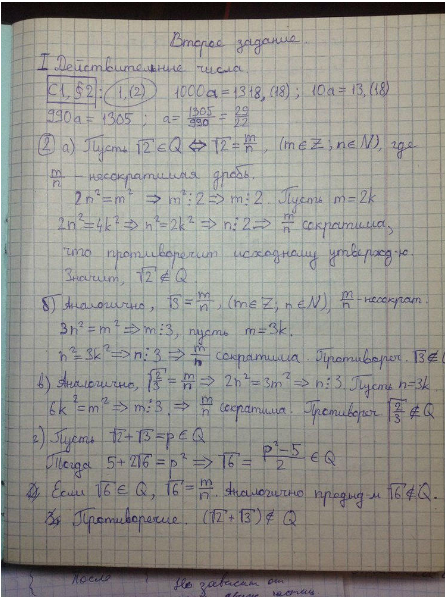 Второе задание.
I Действительные числа.
С1, §2: 1, (2) 1000a = 1318,(18) ; 10a = 13,(18)
990a = 1305 ; a = 1305/990 = 29/22
2 а) Пусть √2 ∈ Q ⇔ √2 = m/n, (m ∈ Z; n ∈ N), где
m/n – несократимая дробь.
2n² = m² ⇒ m² ⋮ 2 ⇒ m ⋮ 2. Пусть m = 2k
2n² = 4k² ⇒ n² = 2k² ⇒ n ⋮ 2 ⇒ m/n сократима,
что противоречит исходному утвержд-ю.
Значит, √2 ∉ Q
б) Аналогично, √3 = m/n, (m ∈ Z; n ∈ N), m/n - несократ.
3n² = m² ⇒ m ⋮ 3, пусть m = 3k.
n² = 3k² ⇒ n ⋮ 3 ⇒ m/n сократима. Противореч. √3 ∉
в) Аналогично, √2/3 = m/n ⇒ 2n² = 3m² ⇒ n ⋮ 3. Пусть n = 3k.
6k² = m² ⇒ m ⋮ 3, ⇒ m/n сократима. Противореч √2/3 ∉ Q
г) Пусть √2 + √3 = p ∈ Q
Тогда 5 + 2√6 = p² ⇒ √6 = p² – 5/2 ∈ Q
Если √6 ∈ Q, √6 = m/n. Аналогично предыд-м √6 ∉ Q.
Противоречие. (√2 + √3) ∉ Q
После Не зависит от